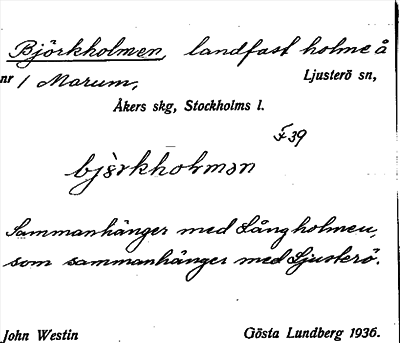 Björkholmen, landfast holme å
nr 1 Marum, Ljusterö sn,
Åkers skg, Stockholms l.
F 39
bjò̈rkhoḷmən
Sammanhänger med Långholmen,
som sammanhänger med Ljusterö.
John Westin Gösta Lundberg 1936.